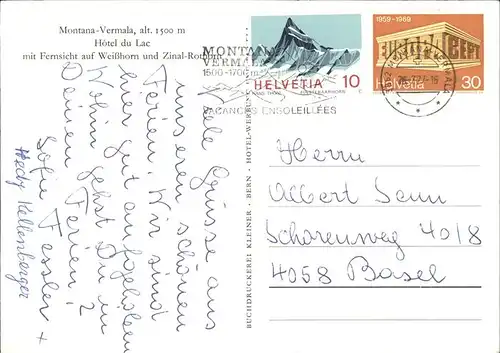 Montana-Vermala, alt. 1500 m
Hôtel du Lac
mit Fernsicht auf Weißhorn und Zinal-Rothorn
Viele Grüsse aus
unseren schönen
Ferien. Wir sind
hier gut aufgehoben
Wohin gehst Du in
Deinen Ferien?
Sofie Fessler +
Hedy Kellenberger
BUCHDRUCKEREI KLEINER - BERN - HOTEL-WERBUNG
MONTANA
VERMALA
1500-1700 m
VACANCES ENSOLEILLÉES
HELVETIA 10
1959-1969
EUROPA CEPT
Helvetia 30
Herrn
Albert Senn
Schorenweg 40/8
4058 Basel